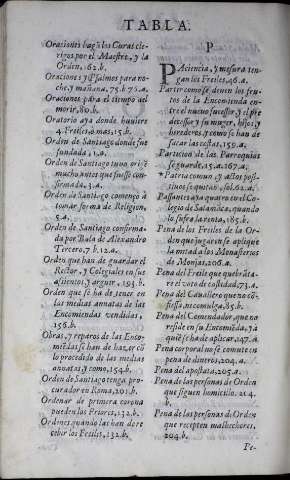 TABLA.
Oraciones hagã los Curas cle-
rigos por el Maestre, y la
Orden, 62.b.
Oraciones y Psalmos para no-
che, y mañana, 75.b.76.a.
Oraciones para el tiempo del
morir, 80.b.
Oratorio aya donde huviere
4. Freiles, ò mas, 15.b.
Orden de Santiago donde fue
fundada, 1.a.
Orden de Santiago tuvo orige
mucho antes que fuesse con-
firmada, 3.a.
Orden de Santiago començò à
tomar forma de Religion,
5.a.
Orden de Santiago confirma-
da por Bula de Alexandro
Tercero, 7.b.12.a.
Orden que han de guardar el
Rector, y Colegiales en sus
assientos, y arguir, 193.b.
Orden que se ha de tener en
las medias annatas de las
Encomiendas vendidas,
156.b.
Obras, y reparos de las Enco-
miẽdas, se han de hazer, cò
lo procedido de las medias
annatas, y como, 154.b.
Orden de Santiago tenga pro-
curador en Roma, 201.b.
Ordenar de primera corona
pueden los Priores, 132.b.
Ordenes quando las han de re
cebir los Freiles, 132.b.
P
PAciencia, y mesura ten-
gan los Freiles, 46.a.
Partir como se deven los fru-
tos de la Encomienda en-
tre el nuevo sucessor, y el pre
decessor, y su muger, hijos, y
herederos, y como se han de
sacar las costas, 159.a.
Particion de las Parroquias
se guarde, 45.a. 267.a.
* Patria comun, y actos posi-
tivos se quitan, fol.62.a.
Passantes aya quatro en el Co-
legio de Salamãca, quando
lo sufra la renta, 185.b.
Pena de los Freiles de la Or-
den que jugaren se aplique
la mitad a los Monasterios
de Monjas, 206.a.
Pena del Freile que quebrãta-
re el voto de castidad, 73.a.
Pena del Cavallero que no cõ-
fiessa, ne comulga, 85.b.
Pena del Comendador, que no
reside en su Encomiẽda, y à
quiẽ se ha de aplicar, 147.a.
Pena corporal no se comute en
pena de dineros, 204.a.
Pena del apostata, 205.a.
Pena de las personas de Orden
que siguen homicidio. 214.
b.
Pena de las personas de Orden
que recepten malhechores,
204.b.
Pe-